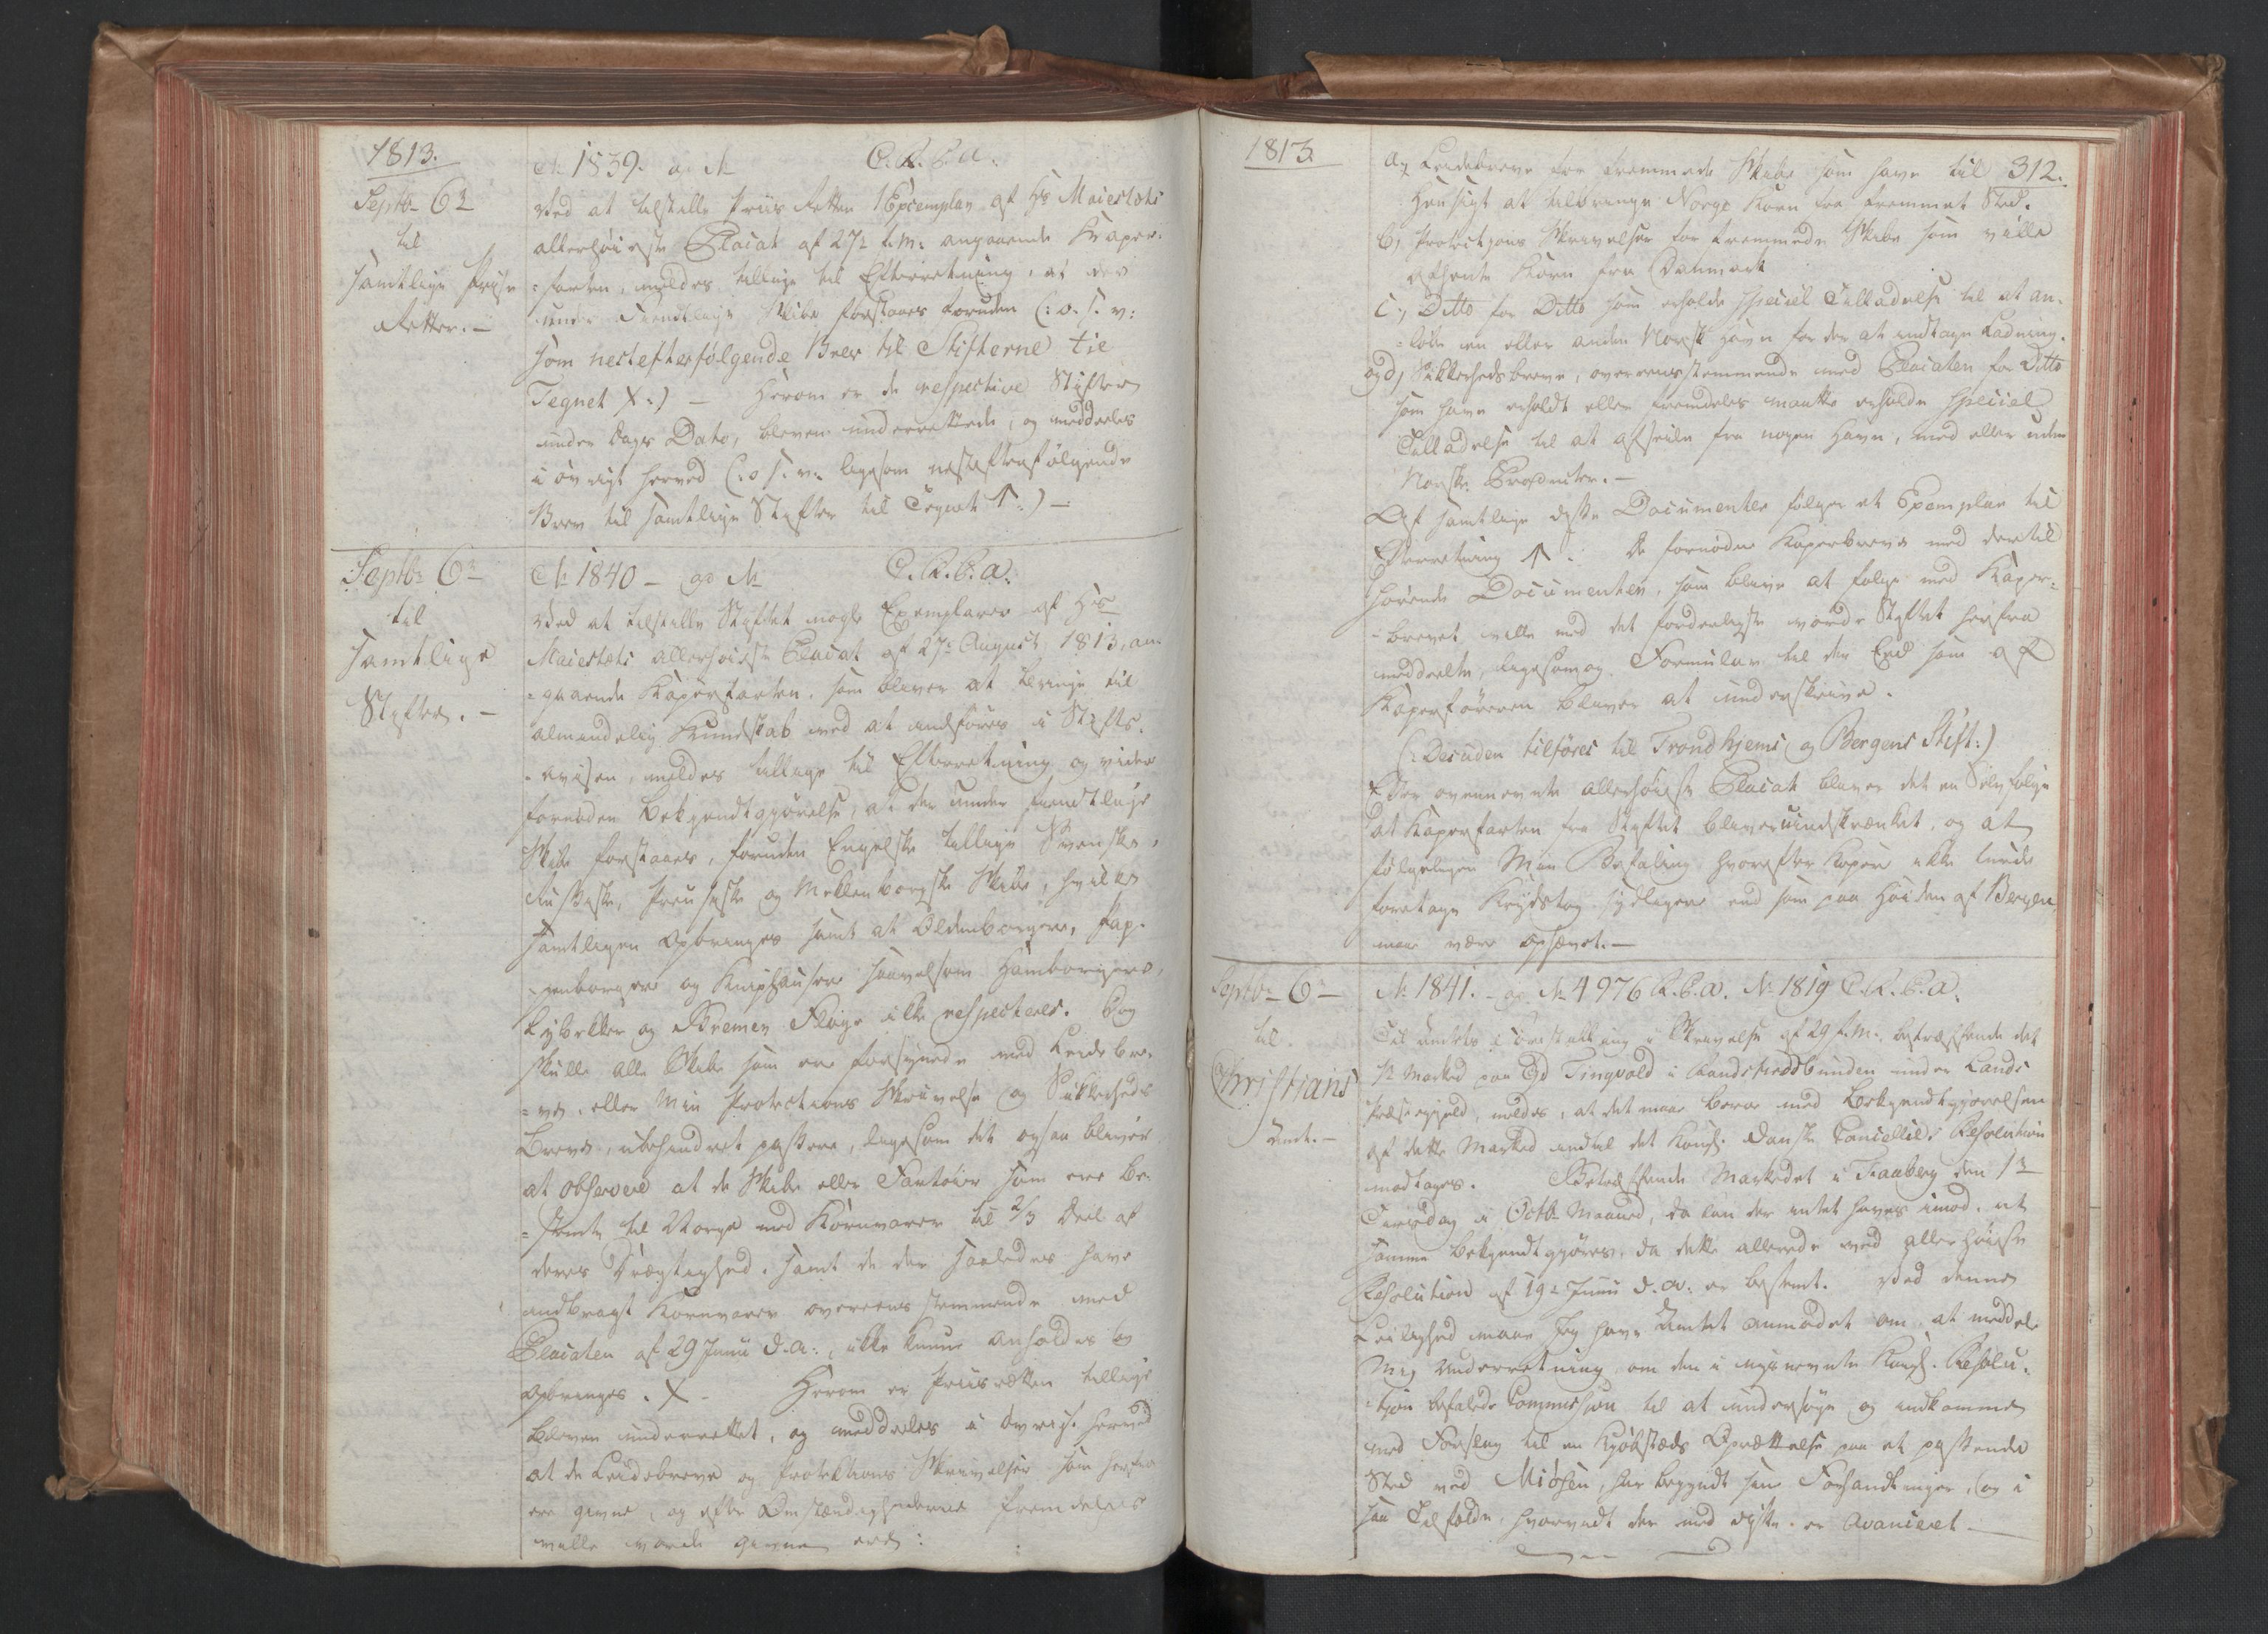 1813.
Septbr 6te
til
samtlige Prise
Retter. –
No 1839. ad No C. K. C. a.
Ved at tilstille Priis Retten 1 Exemplar af Hs Maiestæts
allerhøieste Placat af 27de f. M. angaaende Kaper-
-farten, meldes tillige til Efterretning, at der
under Fiendtlige Skibe forstaaes foruden (: o. s. v:
som nestefterfølgende Brev til Stifterne til
Tegnet X:) – Herom er de respective Stifter
under Dags Dato, bleven underrettede, og meddeeles
i øvrigt herved (: o s. v. ligesom nestefterfølgende
Brev til samtlige Stifter til Tegnet ↑:) –
Septbr 6te
til
samtlige
Stifter. –
No 1840 – ad No C. K. C. a.
Ved at tilstille Stiftet nogle Exemplarer af Hs
Maiestæts allerhøieste Placat af 27de August 1813, an-
-gaaende Kaperfarten, som bliver at bringe til
almindelig Kundskab ved at indføres i Stifts-
-avisen, meldes tillige til Efterretning og videre
fornøden Bekjendtgjørelse, at der under fiendtlige
Skibe forstaaes, foruden Engelske tillige Svenske,
Russiske, Preussiske og Meklenborgske Skibe, hvilke
samtligen opbringes samt at Oldenborgere, Pap-
-penborgere og Kniphausere saavelsom Hamborgere,
Lybekker og Bremer Flage ikke respecteres. Dog
skulle alle Skibe som ere forsynede med Leidebre-
-ve, eller Min Protections Skrivelse og Sikkerheds
Breve, ubehindret passere, ligesom det ogsaa bliver
at observere at de Skibe eller Fartøier som ere be-
-stemte til Norge med Kornvarer til 2/3 Deel af
deres Drægtighed, samt de der saaledes have
indbragt Kornvarer overeensstemmende med
Placaten af 29 Junii d. A:, ikke kunne anholdes og
opbringes. X – Herom er Priisretten tillige
bleven underrettet, og meddeeles i øvrigt herved
at de Leidebreve og Protektions Skrivelser som herfra
ere givne, og efter Omstændighederne fremdeles
ville vorde givne ere:
1813.
312.
a, Leidebreve for fremmede Skibe som have til
Hensigt at tilbringe Norge Korn fra fremmet Sted.
b, Protections Skrivelser for fremmede Skibe som ville
afhente Korn fra Danmark
c, Ditto for Ditto som erholde speciel Tilladelse til at an-
-løbe en eller anden Norsk Havn for der at indtage Ladning.
og d, Sikkerhedsbreve, overeensstemmende med Placaten for Ditto
som have erholdt eller fremdeles maatte erholde speciel
Tilladelse til at afseile fra nogen Havn, med eller uden
Norske Producter. –
Af samtlige disse Documenter følger et Exemplar til
Efterretning ↑. De fornødne Kaperbreve med dertil
hørende Documenter, som bliver at følge med Kaper-
-brevet ville med det forderligste vorde Stiftet herfra
meddeelte, ligesom og Formular til den Eed som af
Kaperføreren bliver at underskrive.
(: Desuden tilføies til Trondhjems og Bergens Stift:)
Efter ovennevnte allerhøieste Placat bliver det en Selvfølge
at Kaperfarten fra Stiftet bliver uindskrænket, og at
følgeligen Min Befaling hvorefter Kapere ikke turde
foretage Krydstog sydligere end som paa Høiden af Bergen,
maa være ophævet. –
Septbr 6te
til
Christians
Amt. –
No 1841. – ad No 4976 K. C. a. No 1819 C. K. C. a.
Til Amtets Forestilling i Skrivelse af 29 f. M. betræffende det
1te Marked paa Tingvold i under Lands
Præstegjeld, meldes, at det maa beroe med Bekjendtgjørelsen
af dette Marked indtil det Kongl. Danske Cancellies Resolution
modtages. Betræffende Markedet i Faaberg den 1te
Tirsdag i Octbr Maaned, da kan der intet haves imod, at
samme bekjendtgjøres, da dette allerede ved allerhøieste
Resolution af 19de Junii d. A. er bestemt. Ved denne
Leilighed maae Jeg have Amtet anmodet om, at meddele
Mig Underretning, om den i nysnevnte Kongl. Resolu-
-tion befalede Commission til at undersøge og indkomme
med Forslag til en Kjøbstads Oprættelse paa et passende
Sted ved Miøsen, har begyndt sine Forhandlinger, og i
saa Tilfælde, hvorvidt der med disse er avanceret –